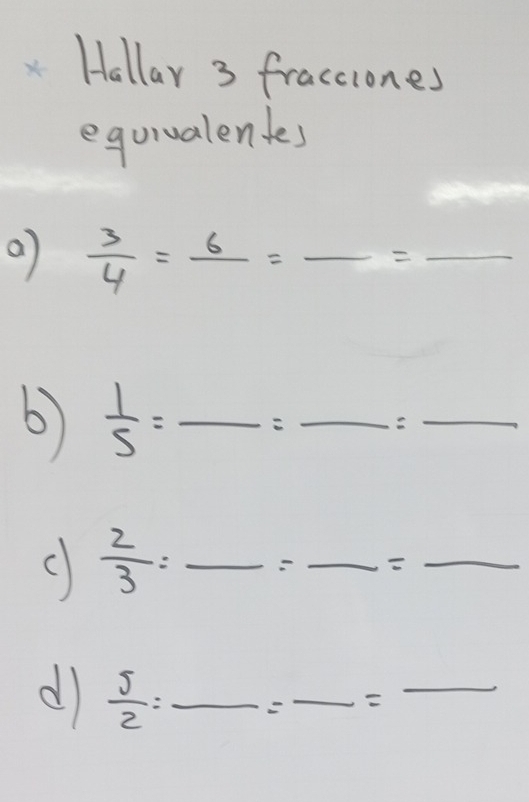 * Hallar 3 fracciones
equivalentes
a) 3/4 = 6/__ = __ = __
b) 1/5 = __ = __ = __
c) 2/3 = __ = __ = __
d) 5/2 = __ = __ = __